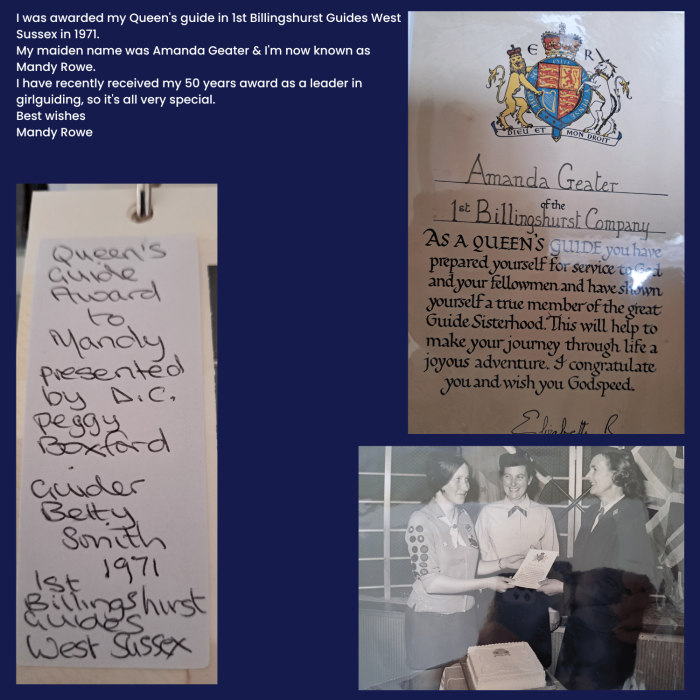 I was awarded my Queen's guide in 1st Billingshurst Guides West
Sussex in 1971.
My maiden name was Amanda Geater & I'm now known as
Mandy Rowe.
I have recently received my 50 years award as a leader in
girlguiding, so it's all very special.
Best wishes
Mandy Rowe
E R
DIEU ET MON DROIT
Amanda Geater
of the
1st Billingshurst Company
AS A QUEEN'S GUIDE you have
prepared yourself for service to God
and your fellowmen and have shown
yourself a true member of the great
Guide Sisterhood. This will help to
make your journey through life a
joyous adventure. I congratulate
you and wish you Godspeed.
Elizabeth R
Queen's
Guide
Award
to
Mandy
presented
by D.C.
Peggy
Boxford
Guider
Betty
Smith
1971
1st
Billingshurst
Guides
West Sussex